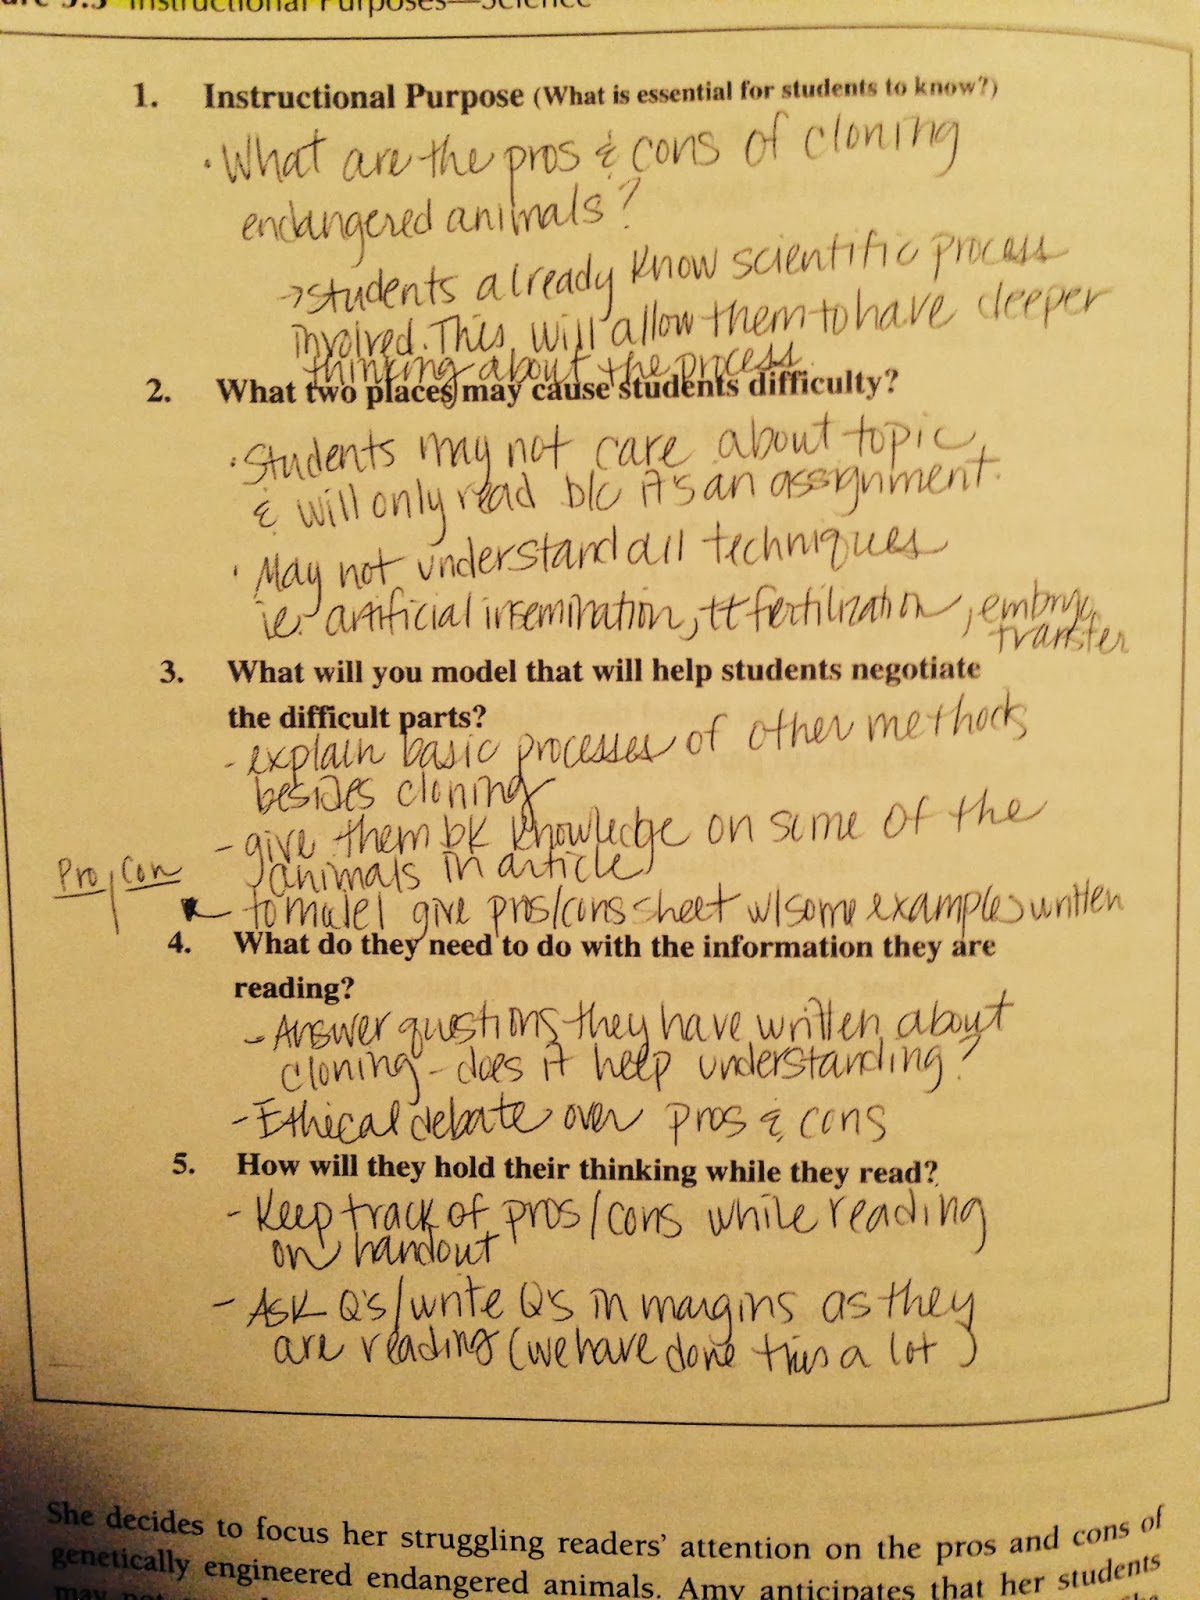 5.5 Instructional Purposes—Science
1. Instructional Purpose (What is essential for students to know?)
· What are the pros & cons of cloning
endangered animals?
→ students already know scientific process
involved. This will allow them to have deeper
thinking about the process.
2. What two places may cause students difficulty?
· Students may not care about topic
& will only read b/c it's an assignment.
· May not understand all techniques
ie. artificial insemination, tt fertilization, embryo
transfer
3. What will you model that will help students negotiate
the difficult parts?
- explain basic processes of other methods
besides cloning
- give them bk knowledge on some of the
animals in article
Pro/Con
- to model give pros/cons sheet w/some examples written
4. What do they need to do with the information they are
reading?
- Answer questions they have written about
cloning - does it help understanding?
- Ethical debate over pros & cons
5. How will they hold their thinking while they read?
- Keep track of pros/cons while reading
on handout
- Ask Q's/write Q's in margins as they
are reading (we have done this a lot)
She decides to focus her struggling readers' attention on the pros and cons of
genetically engineered endangered animals. Amy anticipates that her students
may not